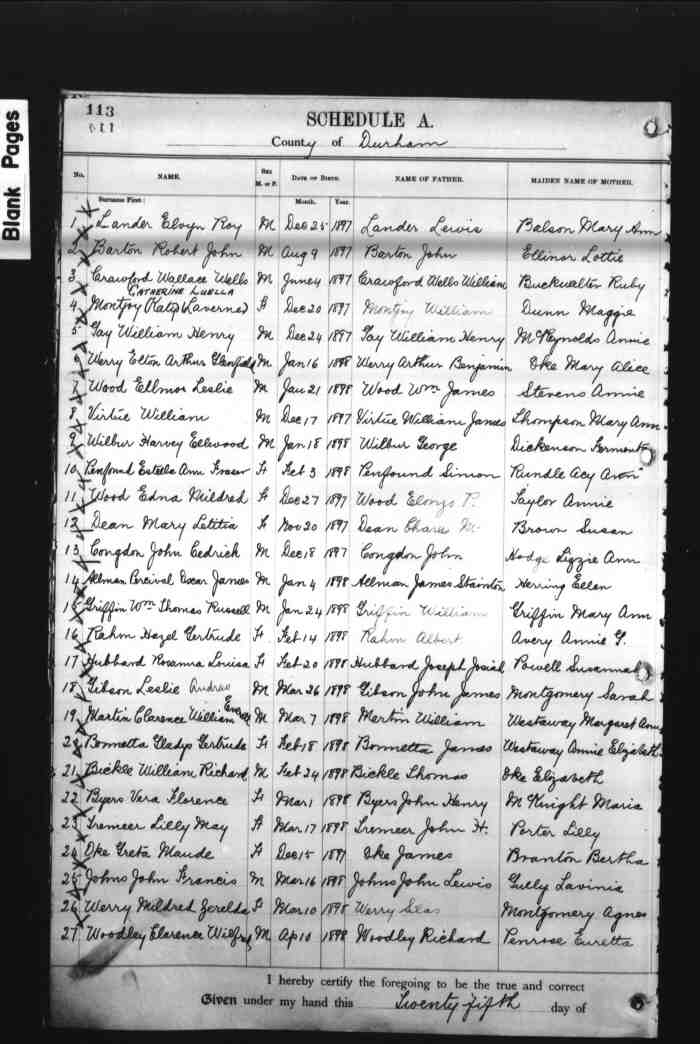 Blank Pages
113
SCHEDULE A.
County of Durham
No. NAME. SEX M. or F. DATE OF BIRTH. NAME OF FATHER. MAIDEN NAME OF MOTHER.
Surname First: Month. Year.
1 Lander Elvyn Roy M Dec 25 1897 Lander Lewis Balson Mary Ann
2 Barton Robert John M Aug 9 1897 Barton John Ellinor Lottie
3 Crawford Wallace Wells M June 4 1897 Crawford Wells William Buckwalter Ruby
CATHERINE LUELLA
4 Montjoy (Kate) (Laverna) F Dec 20 1897 Montjoy William Dunn Maggie
5 Gay William Henry M Dec 24 1897 Gay William Henry McReynolds Annie
6 Werry Elton Arthur M Jan 16 1898 Werry Arthur Benjamin Oke Mary Alice
7 Wood Ellmor Leslie M Jan 21 1898 Wood Wm James Stevens Annie
8 Virtue William M Dec 17 1897 Virtue William James Thompson Mary Ann
9 Wilbur Harvey Ellwood M Jan 18 1898 Wilbur George Dickenson
10 Penfound Estella Ann Fraser F Feb 3 1898 Penfound Simon Rundle Acy Ann
11 Wood Edna Mildred F Dec 27 1897 Wood Elonzo P. Taylor Annie
12 Dean Mary Letitia F Nov 20 1897 Dean M. Brown Susan
13 Congdon John Cedrick M Dec 18 1897 Congdon John Hodge Lizzie Ann
14 Allman Percival Oscar James M Jan 4 1898 Allman James Stainton Herring Ellen
15 Griffin Wm Thomas Russell M Jan 24 1898 Griffin William Griffin Mary Ann
16 Rahm Hazel Gertrude F Feb 14 1898 Rahm Albert Avery Annie G.
17 Hubbard Rosanna Louisa F Feb 20 1898 Hubbard Joseph Josiah Powell Susannah
18 Gibson Leslie Andrew M Mar 26 1898 Gibson John James Montgomery Sarah
19 Martin Clarence William M Mar 7 1898 Martin William Westaway Margaret Ann
20 Bonnetta Gladys Gertrude F Feb 18 1898 Bonnetta James Westaway Annie Elizabeth
21 Bickle William Richard M Feb 24 1898 Bickle Thomas Oke Elizabeth
22 Byers Vera Florence F Mar 1 1898 Byers John Henry McKnight Maria
23 Tremeer Lilly May F Mar 17 1898 Tremeer John H. Porter Lilly
24 Oke Greta Maude F Dec 15 1897 Oke James Branton Bertha
25 Johns John Francis M Mar 16 1898 Johns John Lewis Gully Lavinia
26 Werry Mildred Zerelda F Mar 10 1898 Werry Silas Montgomery Agnes
27 Woodley Clarence Wilfred M Ap 10 1898 Woodley Richard Penrose Euretta
I hereby certify the foregoing to be the true and correct
Given under my hand this Twenty fifth day of